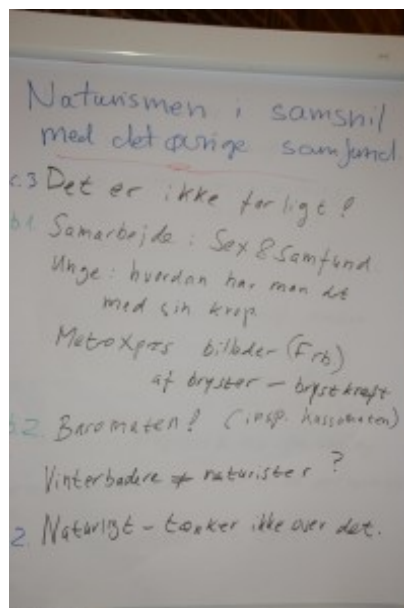 Naturismen i samspil
med det øvrige samfund
c.3 Det er ikke farligt!
b1. Samarbejde: Sex & Samfund
Unge: hvordan har man det
med sin krop
MetroXpres billeder (Frb)
af bryster - brystkræft
b2. Baromaten! (insp. kussomaten)
Vinterbadere ≠ naturister?
2. Naturligt - tænker ikke over det.